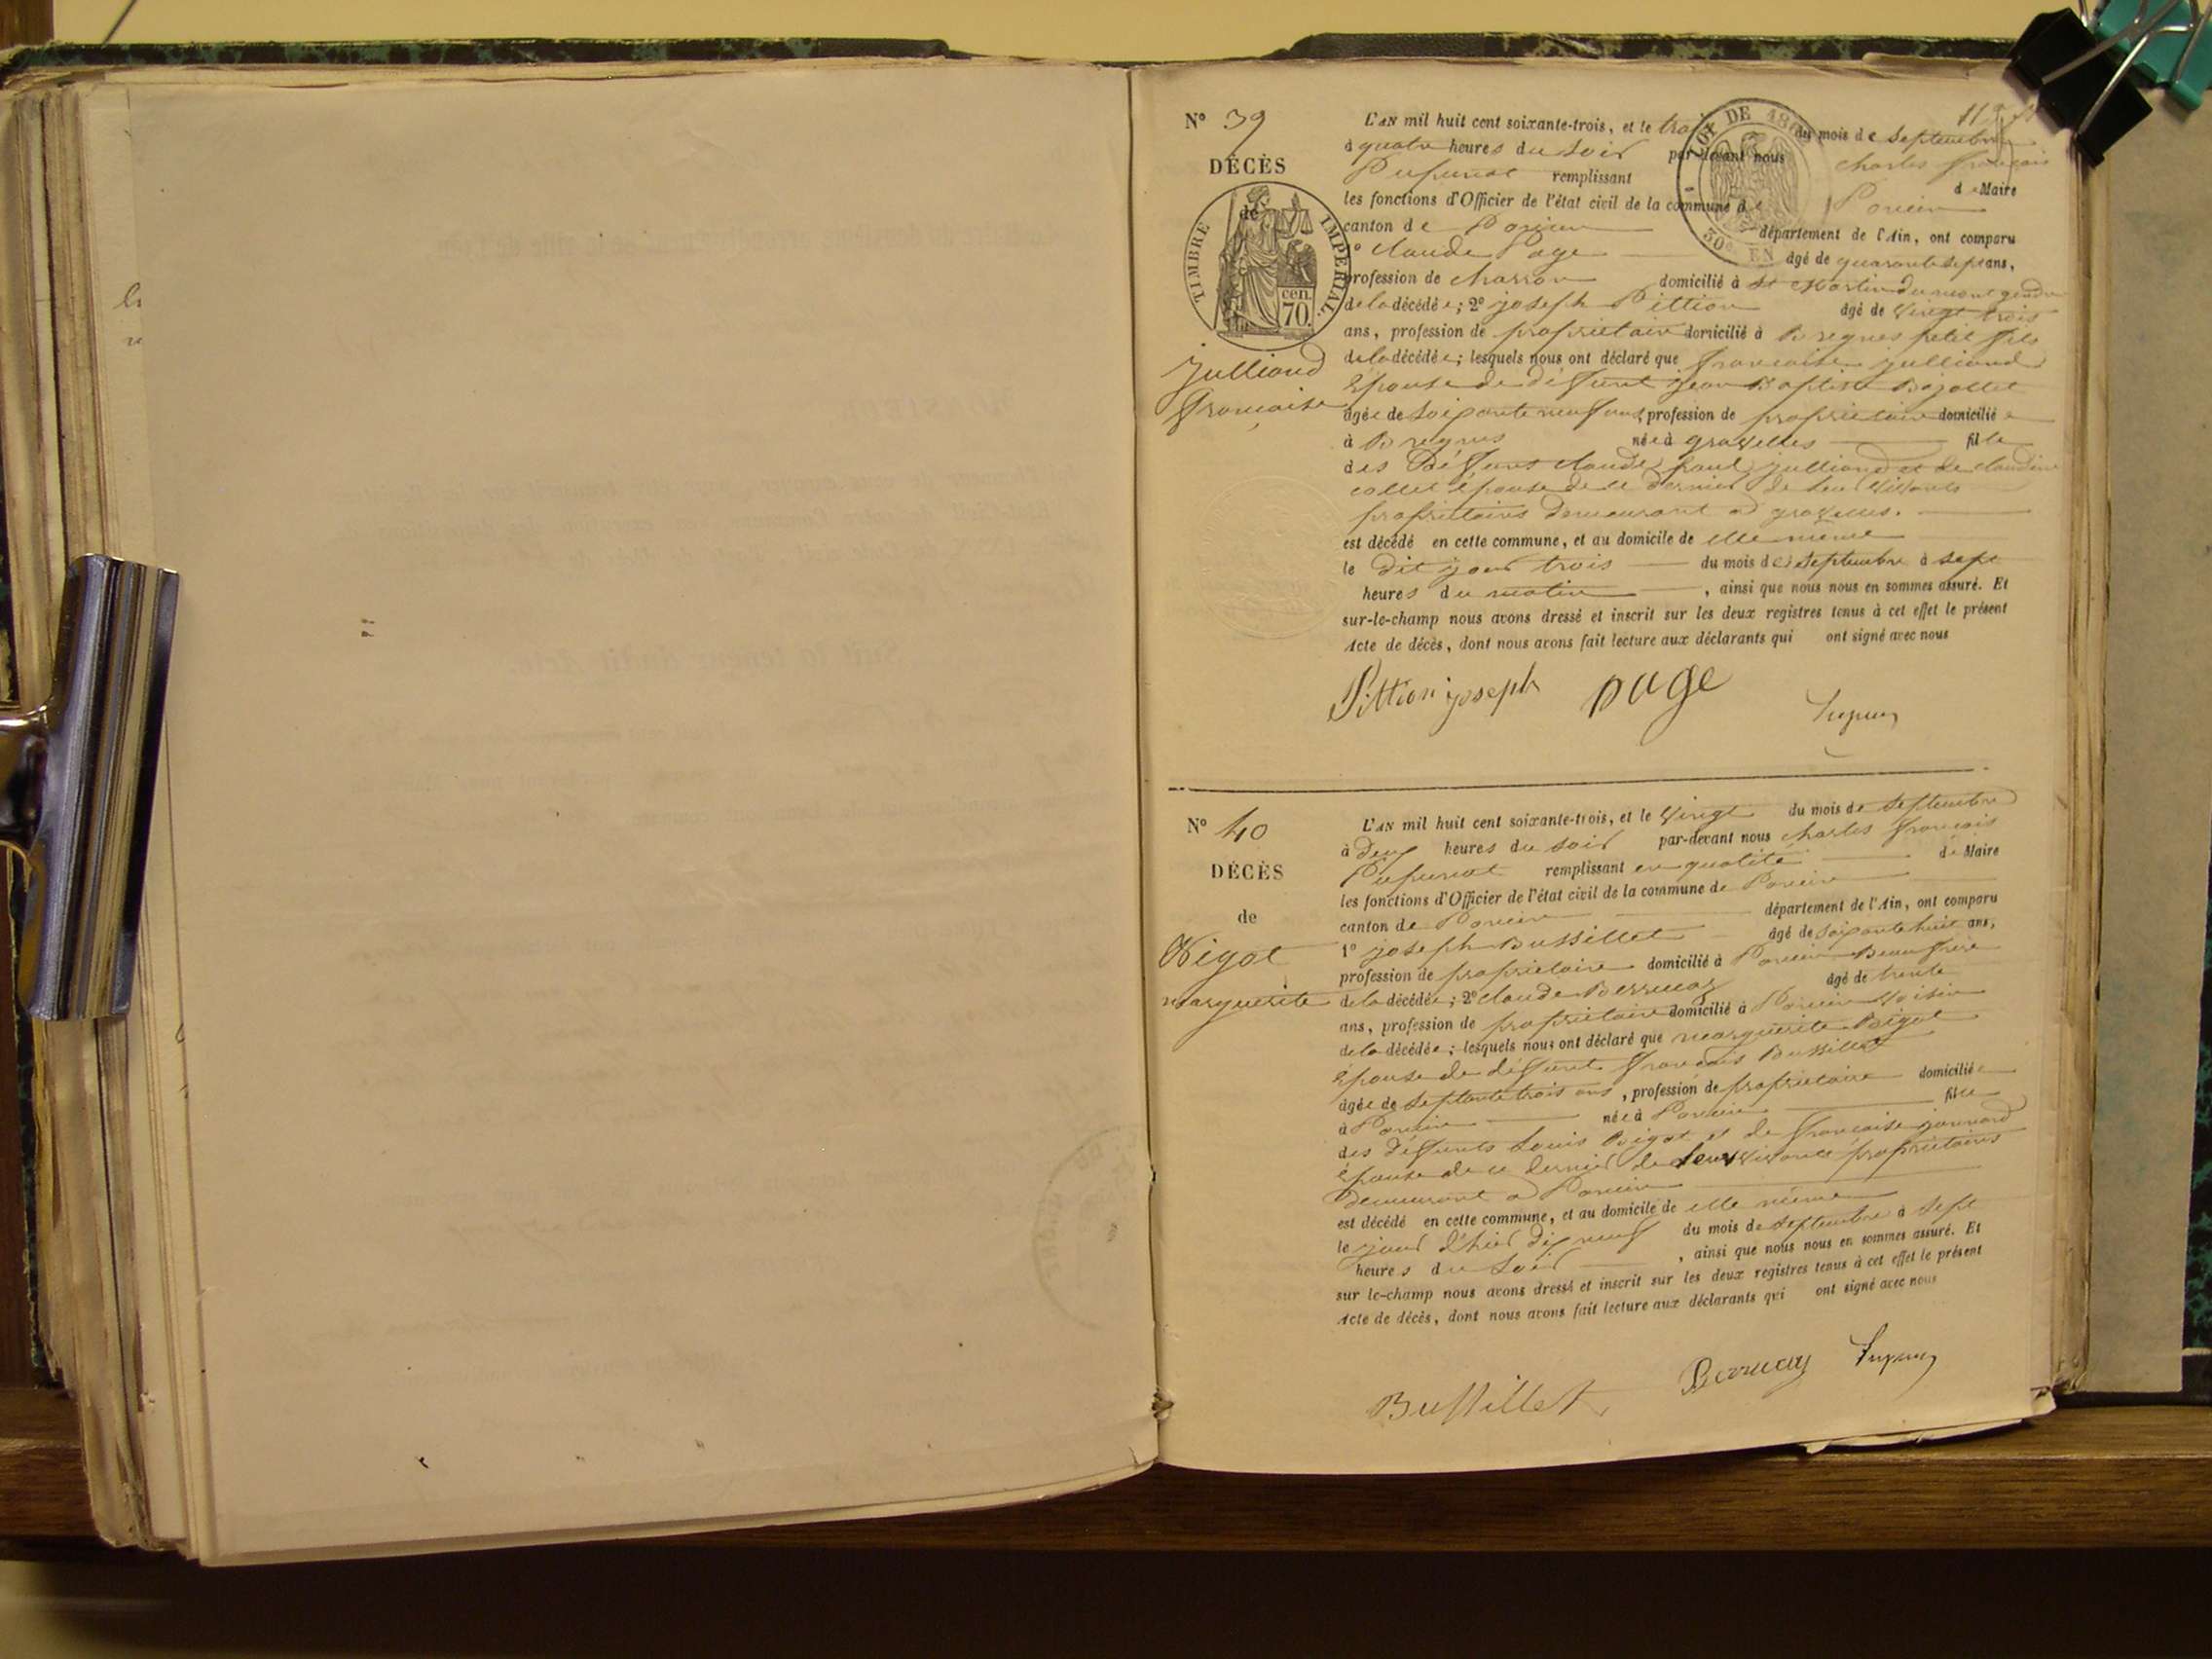 N° 39
DÉCÈS
de
TIMBRE IMPÉRIAL
cen. 70.
Julliand
Francoise
L'AN mil huit cent soixante-trois, et le trois du mois de Septembre
à quatre heures du soir par-devant nous Charles Français
remplissant de Maire
les fonctions d'Officier de l'état civil de la commune de Poncin
canton de Poncin département de l'Ain, ont comparu
1° Claude Page âgé de quarante sept ans,
profession de charron domicilié à St Martin du mont gendre
de la décédée; 2° joseph Pittion âgé de vingt trois
ans, profession de propriétaire domicilié à Breignes petit fils
de la décédée; lesquels nous ont déclaré que francoise julliand
épouse de défunt jean Baptiste
âgée de soixante neuf ans, profession de propriétaire domiciliée
à née à gravelles fille
des Défunts claude paul julliand et de claudine
collet épouse de ce dernier de leur vivants
propriétaires demeurant a gravelles.
est décédé en cette commune, et au domicile de elle même
le dit jour trois du mois de septembre à sept
heures du matin , ainsi que nous nous en sommes assuré. Et
sur-le-champ nous avons dressé et inscrit sur les deux registres tenus à cet effet le présent
Acte de décès, dont nous avons fait lecture aux déclarants qui ont signé avec nous
Pittion joseph page
N° 40
DÉCÈS
de
Bigot
marguerite
L'AN mil huit cent soixante-trois, et le vingt du mois de Septembre
à deux heures du soir par-devant nous charles français
remplissant en qualité de Maire
les fonctions d'Officier de l'état civil de la commune de Poncin
canton de Poncin département de l'Ain, ont comparu
1° joseph Bussillet âgé de soixante huit ans,
profession de propriétaire domicilié à Poncin Beau frère
de la décédée; 2° claude Berrucaz âgé de trente
ans, profession de propriétaire domicilié à Poncin voisin
de la décédée; lesquels nous ont déclaré que marguerite Bigot
épouse de défunt francois Bussillet
âgée de septante trois ans, profession de propriétaire domiciliée
à Poncin née à Poncin fille
des défunts Louis Bigot et de francoise jannard
épouse de ce dernier de leur vivants propriétaires
demeurant a Poncin
est décédé en cette commune, et au domicile de elle même
le jour d'hier dix neuf du mois de septembre à sept
heures du soir , ainsi que nous nous en sommes assuré. Et
sur le-champ nous avons dressé et inscrit sur les deux registres tenus à cet effet le présent
Acte de décès, dont nous avons fait lecture aux déclarants qui ont signé avec nous
Bussillet Berrucaz